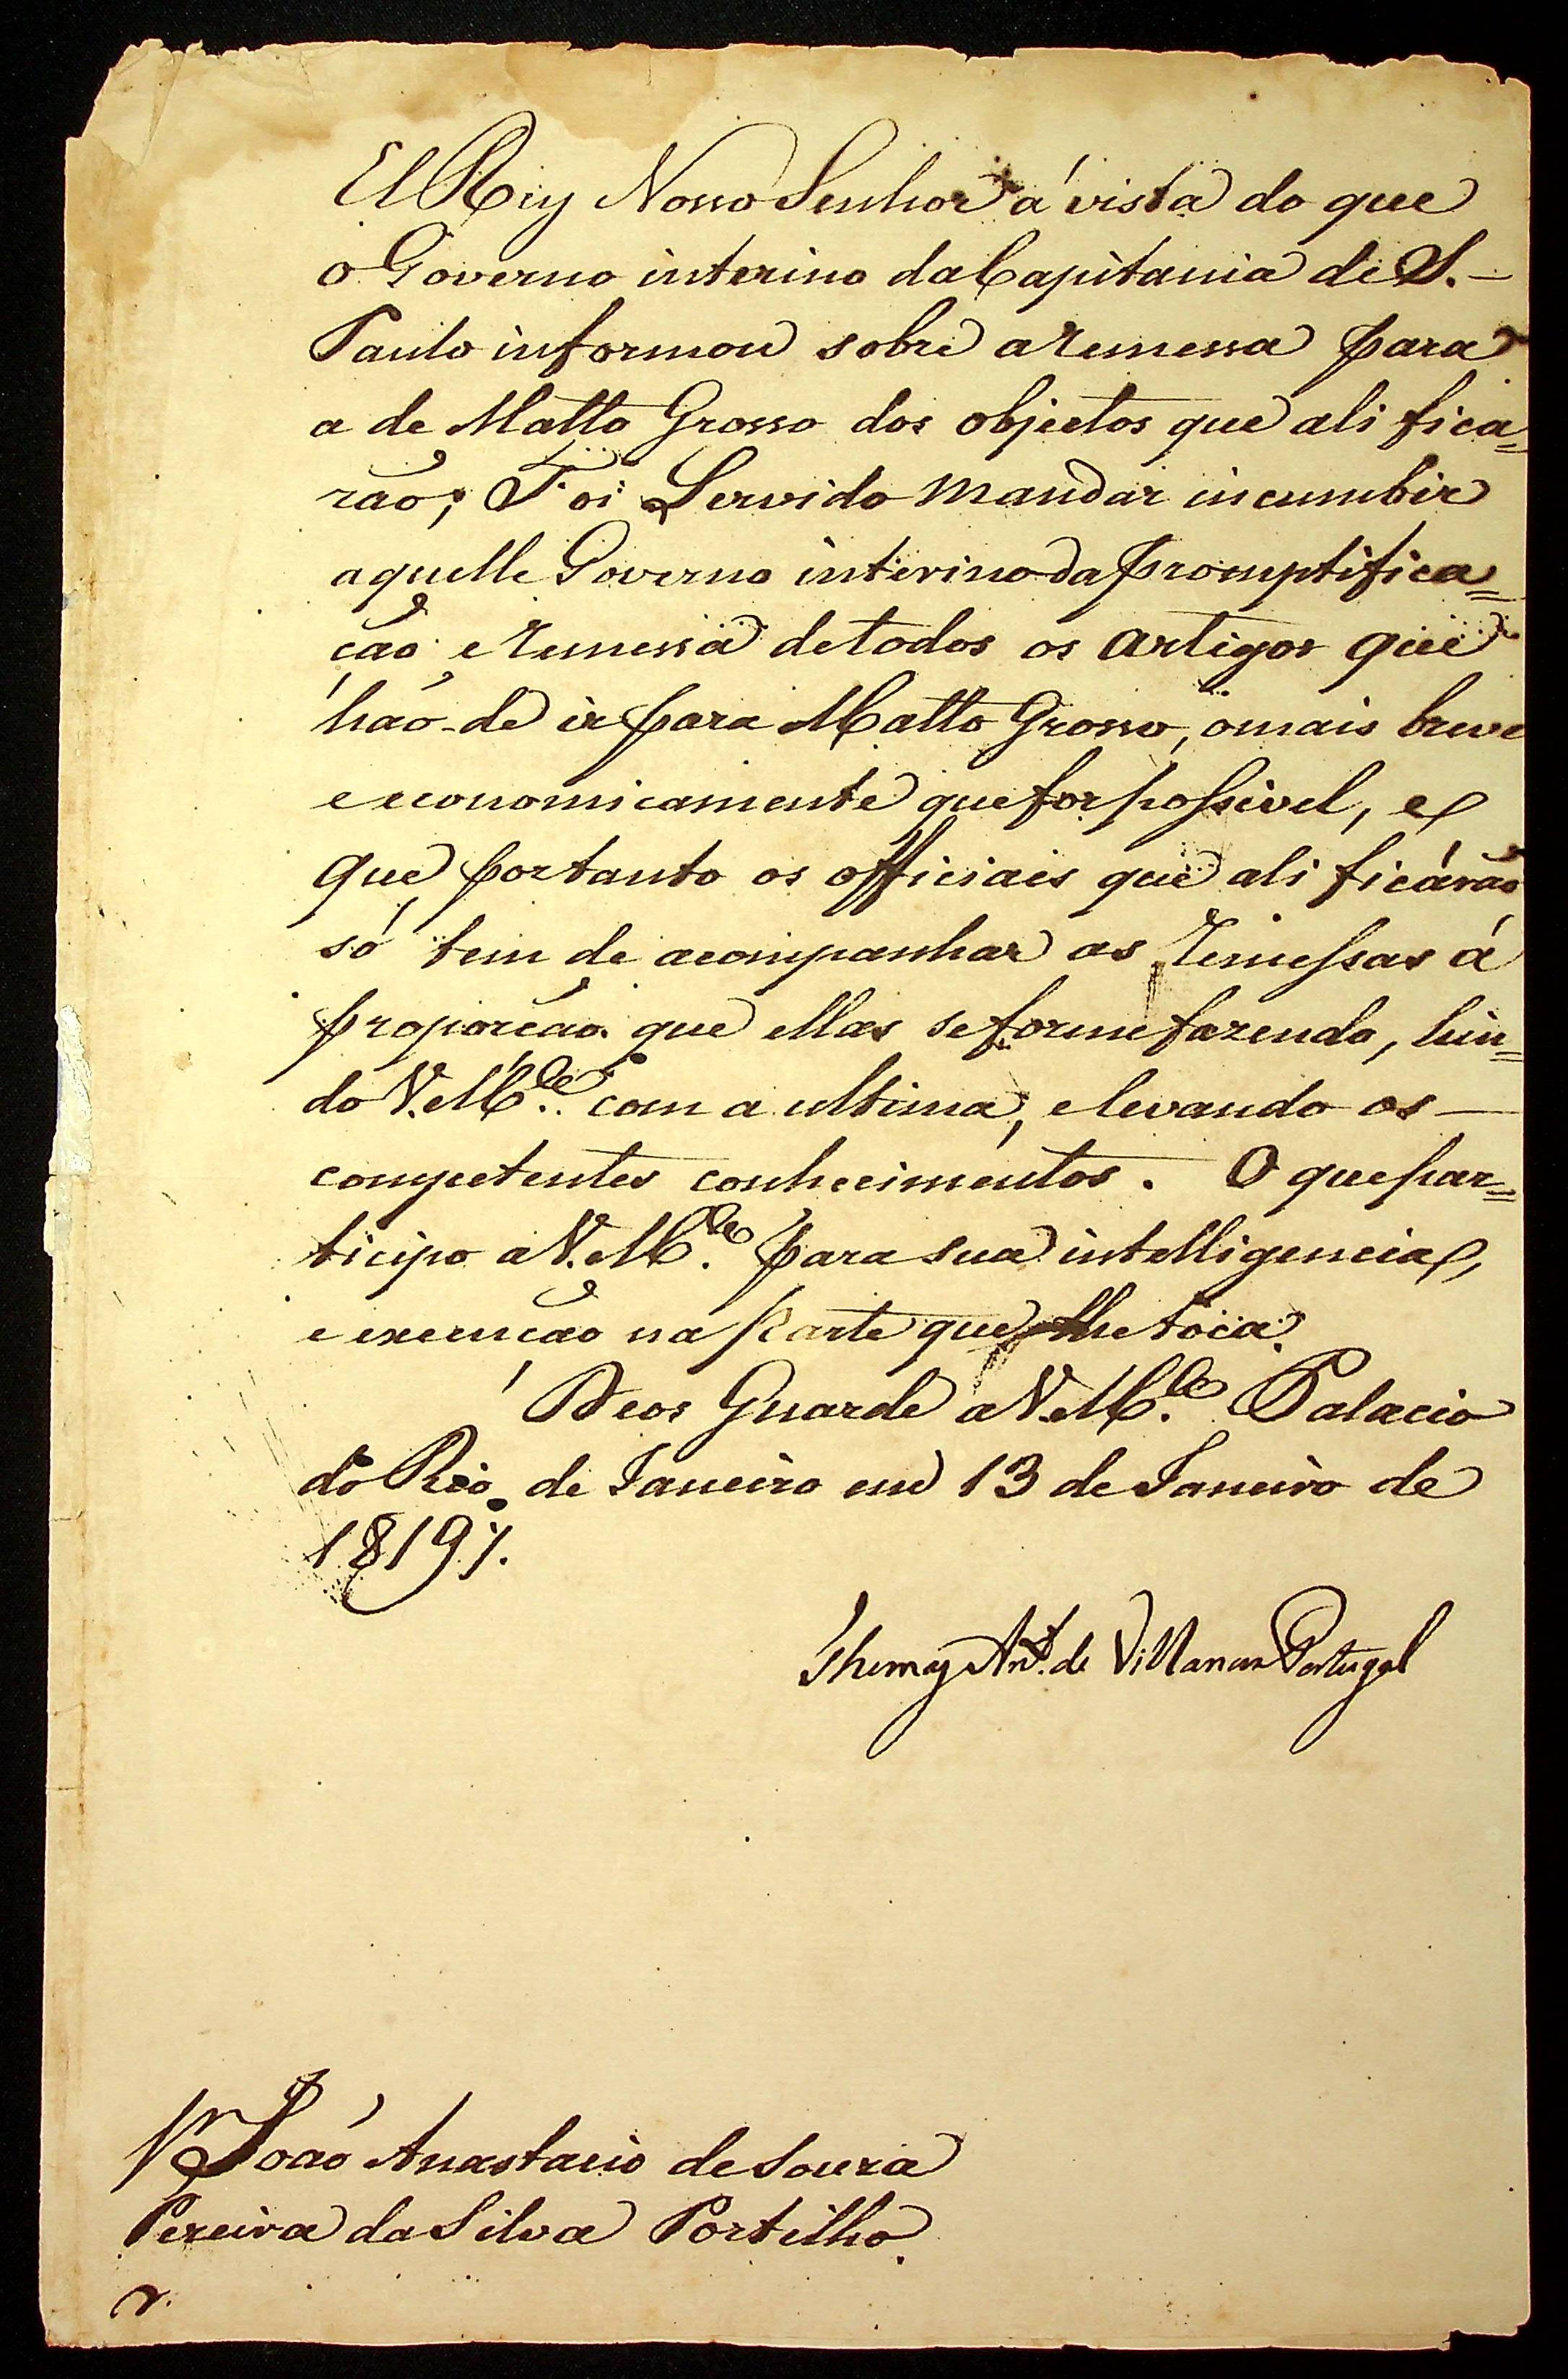 El Rey Nosso Senhor á vista do que
o Governo interino da Capitania de S. –
Paulo informou sobre a remessa para
a de Matto Grosso dos objectos que ali fica=
rão; Foi Servido mandar incumbir
aquelle Governo interino da promptifica=
ção e remessa de todos os artigos que
hão-de ir para Matto Grosso, o mais breve
e economicamente que for possivel, e
que portanto os officiaes que ali ficárão
só tem de acompanhar as remessas á
proporção que ellas se forem fazendo, hin=
do V. M.ce com a ultima, e levando os –
competentes conhecimentos. O que par=
ticipo a V. M.ce para sua intelligencia,
e execução na parte que lhe toca.
Deos Guarde a V. M.ce Palacio
do Rio de Janeiro em 13 de Janeiro de
1819.
Thomaz Ant.o de Villanova Portugal
João Anastacio de Souza
Pereira da Silva Portilho.